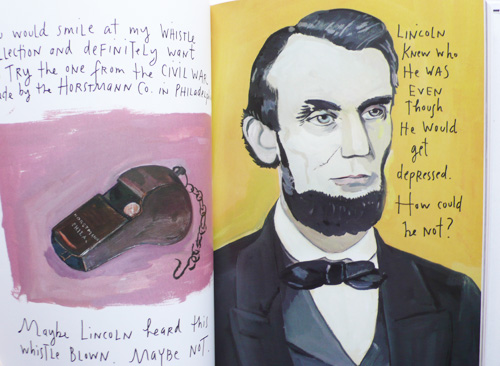 would smile at my WHISTLE
and definitely want
TRY the one from the CIVIL WAR
by the HORSTMANN Co. in
HORSTMANN
PHILAD
Maybe LINCOLN heard this
whistle BLOWN. MAYBE NOT.
LINCOLN
Knew who
He WAS
EVEN
Though
He WOULD
get
depressed.
How could
he not?